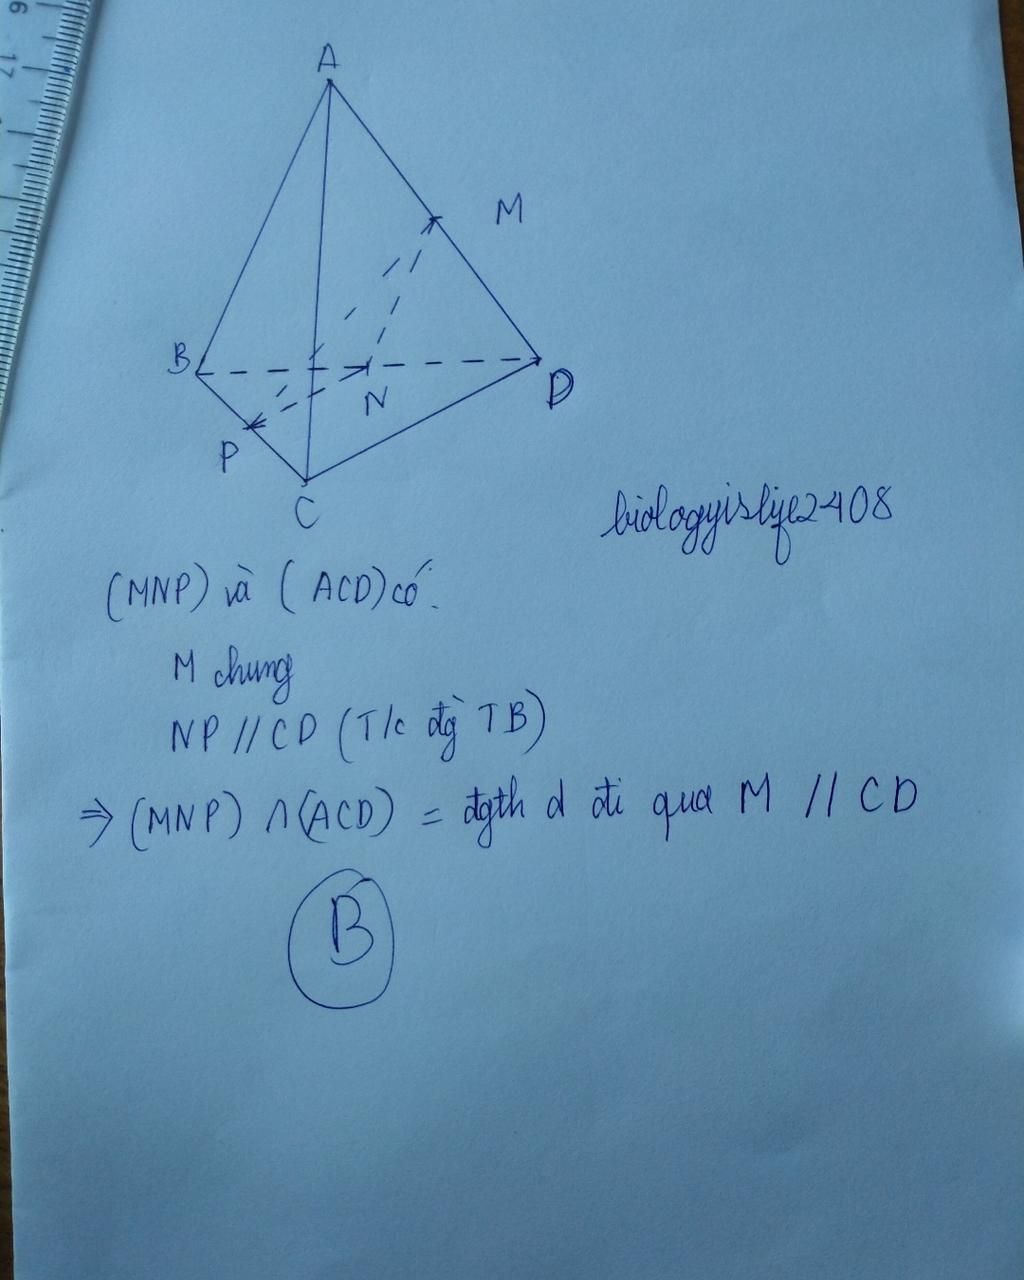 6
17
A
M
B
N
D
P
C
biologyislife2408
(MNP) và (ACD) có:
M chung
NP // CD (T/c đg TB)
⇒ (MNP) ∩ (ACD) = đgth d đi qua M // CD
B